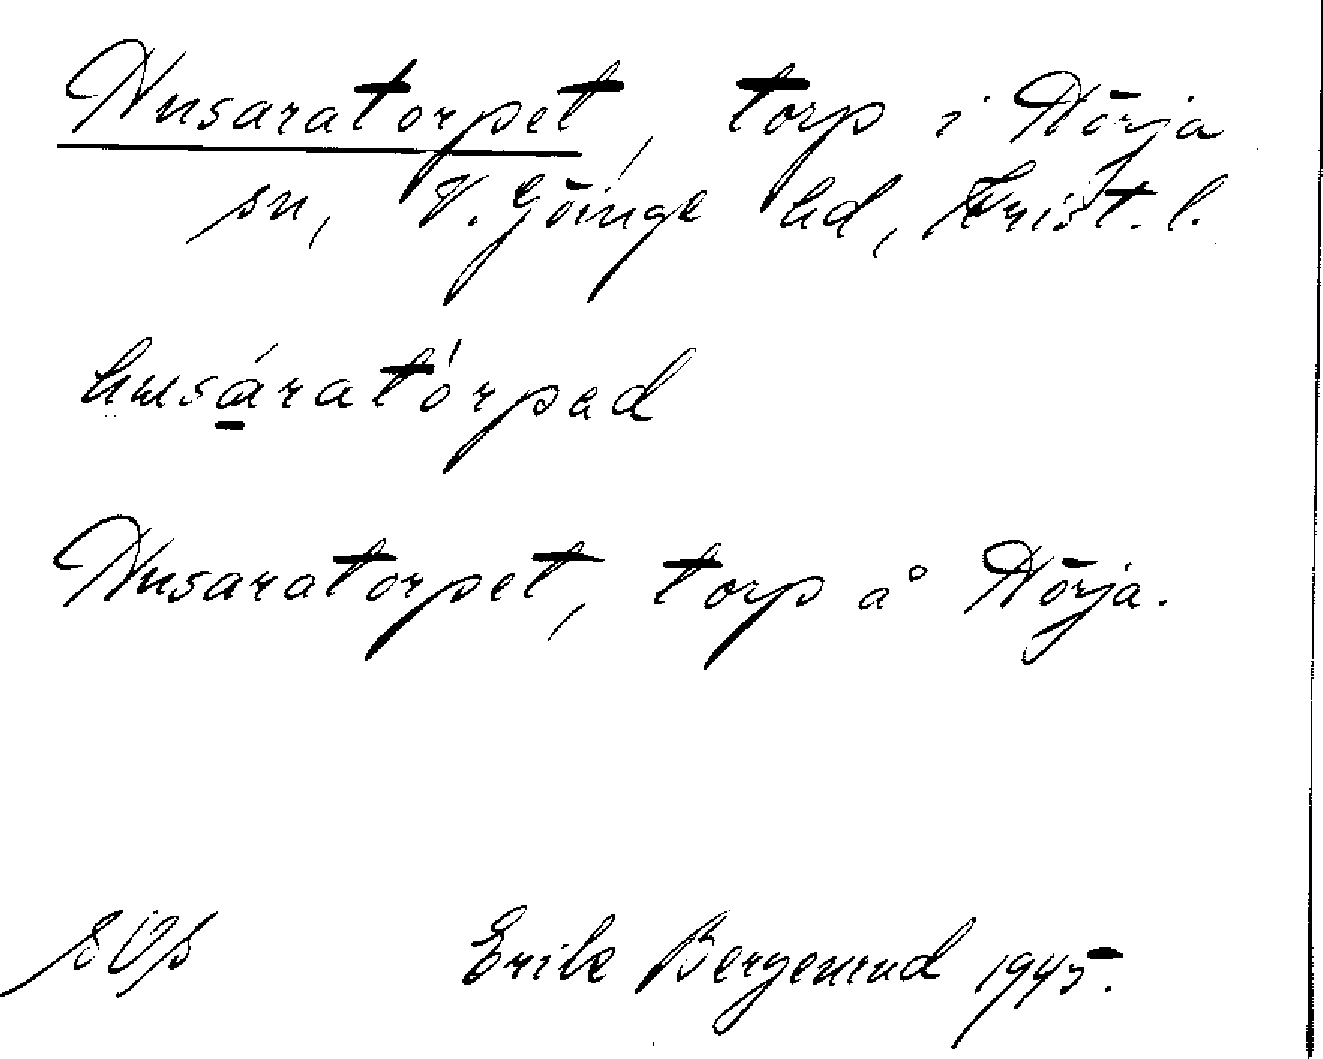 Husaratorpet, torp i Hörja
sn, V. Göinge hd, Krist. l.
husáratórpad
Husaratorpet, torp å Hörja.
Erik Bergenrud 1945.